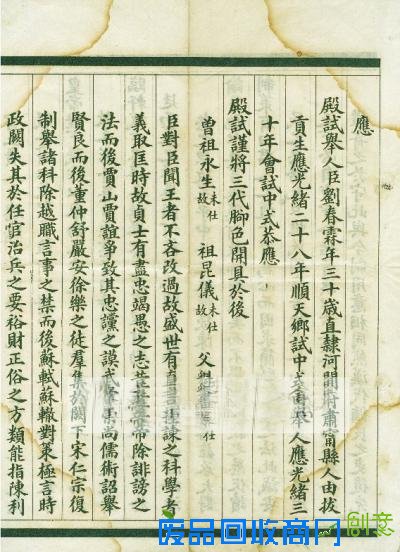 應
殿試舉人臣劉春霖年三十歲直隸河間府肅甯縣人由拔
貢生應光緒二十八年順天鄉試中式舉人應光緒三
十年會試中式恭應
殿試謹將三代腳色開具於後
曾祖永生未仕故 祖昆儀未仕故 父 仕
臣對臣聞王者不吝改過故盛世有直言極諫之科學者
義取匡時故貞士有盡忠竭愚之志昔 帝除誹謗之
法而後賈山賈誼爭致其忠讜之謨武帝 尚儒術詔舉
賢良而後董仲舒嚴安徐樂之徒羣集於闕下宋仁宗復
制舉諸科除越職言事之禁而後蘇軾蘇轍對策極言時
政闕失其於任官治兵之要裕財正俗之方類能指陳利
创意
废品回收商网